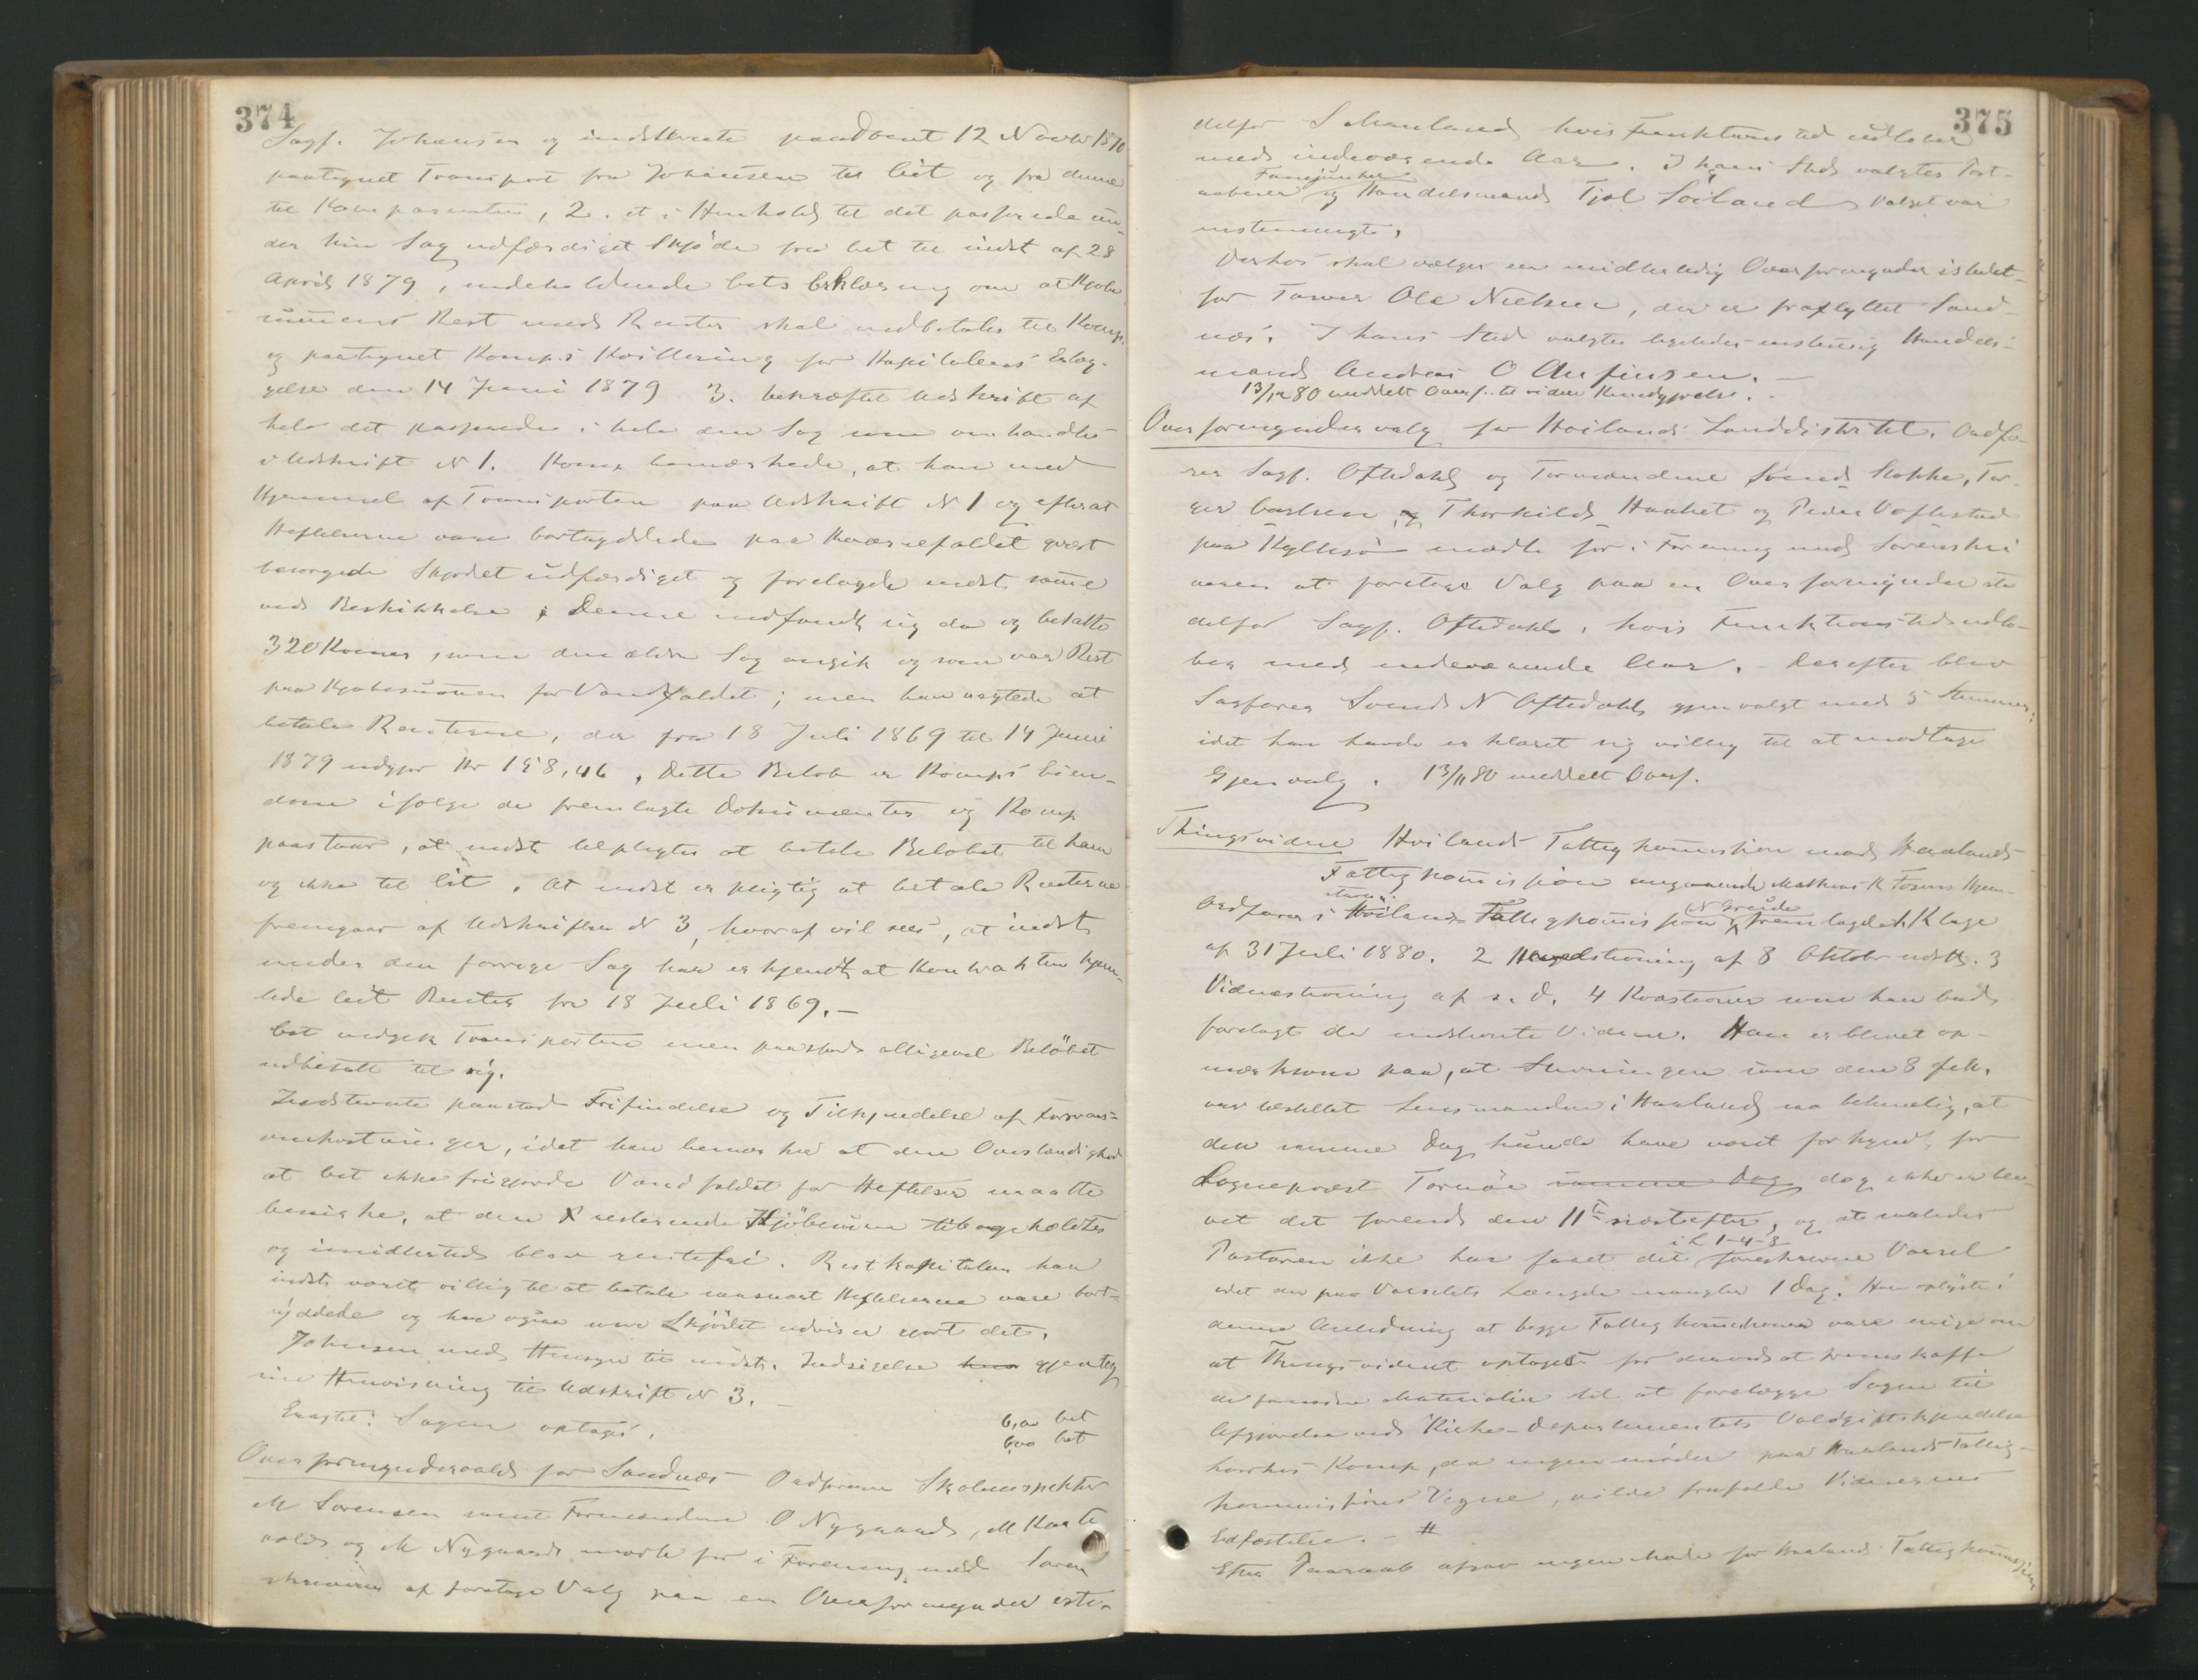 374
Sagf. Johansen og indstevnte paadömt 12 Novbr 1870
paategnet Transport fra Johansen til Eiet og fra denne
til Komparenten, 2. et i Henhold til det passerede un-
der hin Sag udfærdiget Skjöde fra Eiet til indst af 28
April 1879, indeholdende Eiets Erklæring om at Kjöbe
summens Rest med Renter skal udbetales til Komp.
og paategnet Komp.s Kvittering for Kapitalens Erlæg-
gelse den 14 Juni 1879 3. bekræftet Udskrift af
hele det passerede i hele den Sag som omhandles
i Udskrift N 1. Komp bemærkede, at han med
Hjemmel af Transporten paa Udskrift N 1 og efterat
Heftelserne vare bortryddede paa
besörgede Skjödet udfærdiget og forelagde indst. samme
ved Beskikkelse; Denne indfandt sig da og betalte
320 Kroner, som den ældre Sag angik og som var Rest
paa Kjöbesummen for Vandfaldet; men han negtede at
betale Renterne, der fra 18 Juli 1869 til 14 Juni
1879 udgjör Kr 158,46. Dette Belöb er Komps Eien-
dom ifölge de fremlagte Dokumenter og Komp
paastaar, at indst. tilpligtes at betale Belöbet til ham
og ikke til Eiet. At indst er pligtig at betale Renterne
fremgaar af Udskriften N 3, hvoraf vil sees, at indst.
under den forrige Sag har erkjendt at Kontrakten hjem-
lede Eiet Renter fra 18 Juli 1869.-
Eiet vedgik Transporten men paastod alligevel Belöbet
udbetalt til sig.
Indstevnte paastod Frifindelse og Tilkjendelse af Forsvars-
omkostninger, idet han bemærked at den Omstændighed
at Eiet ikke frigjorde Vandfaldet for Heftelser maatte
bevirke, at den resterende Kjöbesum tilbageholdtes
og imidlertid blev rentefri. Restkapitalen har
indst. været villig til at betale saasnart Heftelserne vare bort-
ryddede og har ogsaa som Skjödet udviser gjort det.
Johansen med Hensyn til indst. Indsigelse gjentog
sin Henvisning til Udskrift N 3.
Eragtet: Sagen optages.
6,00 bet
6,00 bet
Overformyndervalg for Sandnæs Ordförer Skoleinspektör
M Sörensen samt Formændene O Nygaard, M Kaste
vold og M Nygaard mödte for i Forening med Soren
skriveren at foretage Valg paa en Overformynder iste-
375
detfor Schanland hvis Funktionstid udlöber
med indeværende Aar. I hans Sted valgtes Post-
Fanejunker
aabner og Handelsmand Tjöl Soiland Valget var
enstemmigt.
Derhos skal vælges en midlertidig Overformynder istedet-
for Farver Ole Nielsen, der er fraflyttet Sand-
næs. I hans Sted valgtes ligeledes enstemmig Handels-
mand Andreas O Aufinsen. -
13/12 80 meddelt Overf. til videre Kundgjörelse.
Overformyndervalg for Höilands Landdistrikt. Ordfö-
rer Sagf. Oftedahl og Formændene Svend Skokke, Tor-
ger Carlsen og Thorkild Hauket og Peder Voftestad
paa Kyllesö mödte for i Forening med Sörenskri
veren at foretage Valg paa en Overformynder iste
detfor Sagf. Oftedahl, hvis Funktionstid udlö-
ber med indeværende Aar. - Derefter blev
Sagförer Svend N Oftedahl gjenvalgt med 5 Stemmer,
idet han havde erklæret sig villig til at modtage
Gjenvalg. 13/11 80 meddelt Overf.
Thingsvidne Höilands Fattigkommission mod Haalands
Fattigkommission angaaende Mathias K Fosens Hjem-
stavn.
Ordförer i Höilands Fattigkommission N Grude fremlagde 1. Klage
af 31 Juli 1880. 2 Hovedstevning af 8 Oktober udst. 3
Vidnestevning af s. D. 4 Kvæstioner som han bad
forelagt de indstevnte Vidner. Han er blevet op-
mærksom paa, at Stevningen som den 8 feb.
var tilstillet Lensmanden i Haaland saa betimelig, at
den samme Dag kunde have været forkyndt for
Sognepræst Tornöe samme Dag, dog ikke er ble-
vet det förend den 11te næstefter, og at saaledes
i L 1-4-3
Pastoren ikke har faaet det foreskrevne Varsel
idet der paa Varselets Længde mangler 1 Dag. Han oplyste i
denne Anledning at begge Fattigkommissioner vare enige om
at Thingsvidnet optages for derved at fremskaffe
de fornödne Materialier til at forelægge Sagen til
Afgjörelse ved Kirke-Departementets Voldgiftskjendelse
hvorhos Komp, da ingen möder paa Haalands Fattig-
kommissions Vegne, vilde frafalde Vidnernes
Edfæstelse. - #
Efter Paaraab afgav ingen Möde for Haalands Fattigkommission